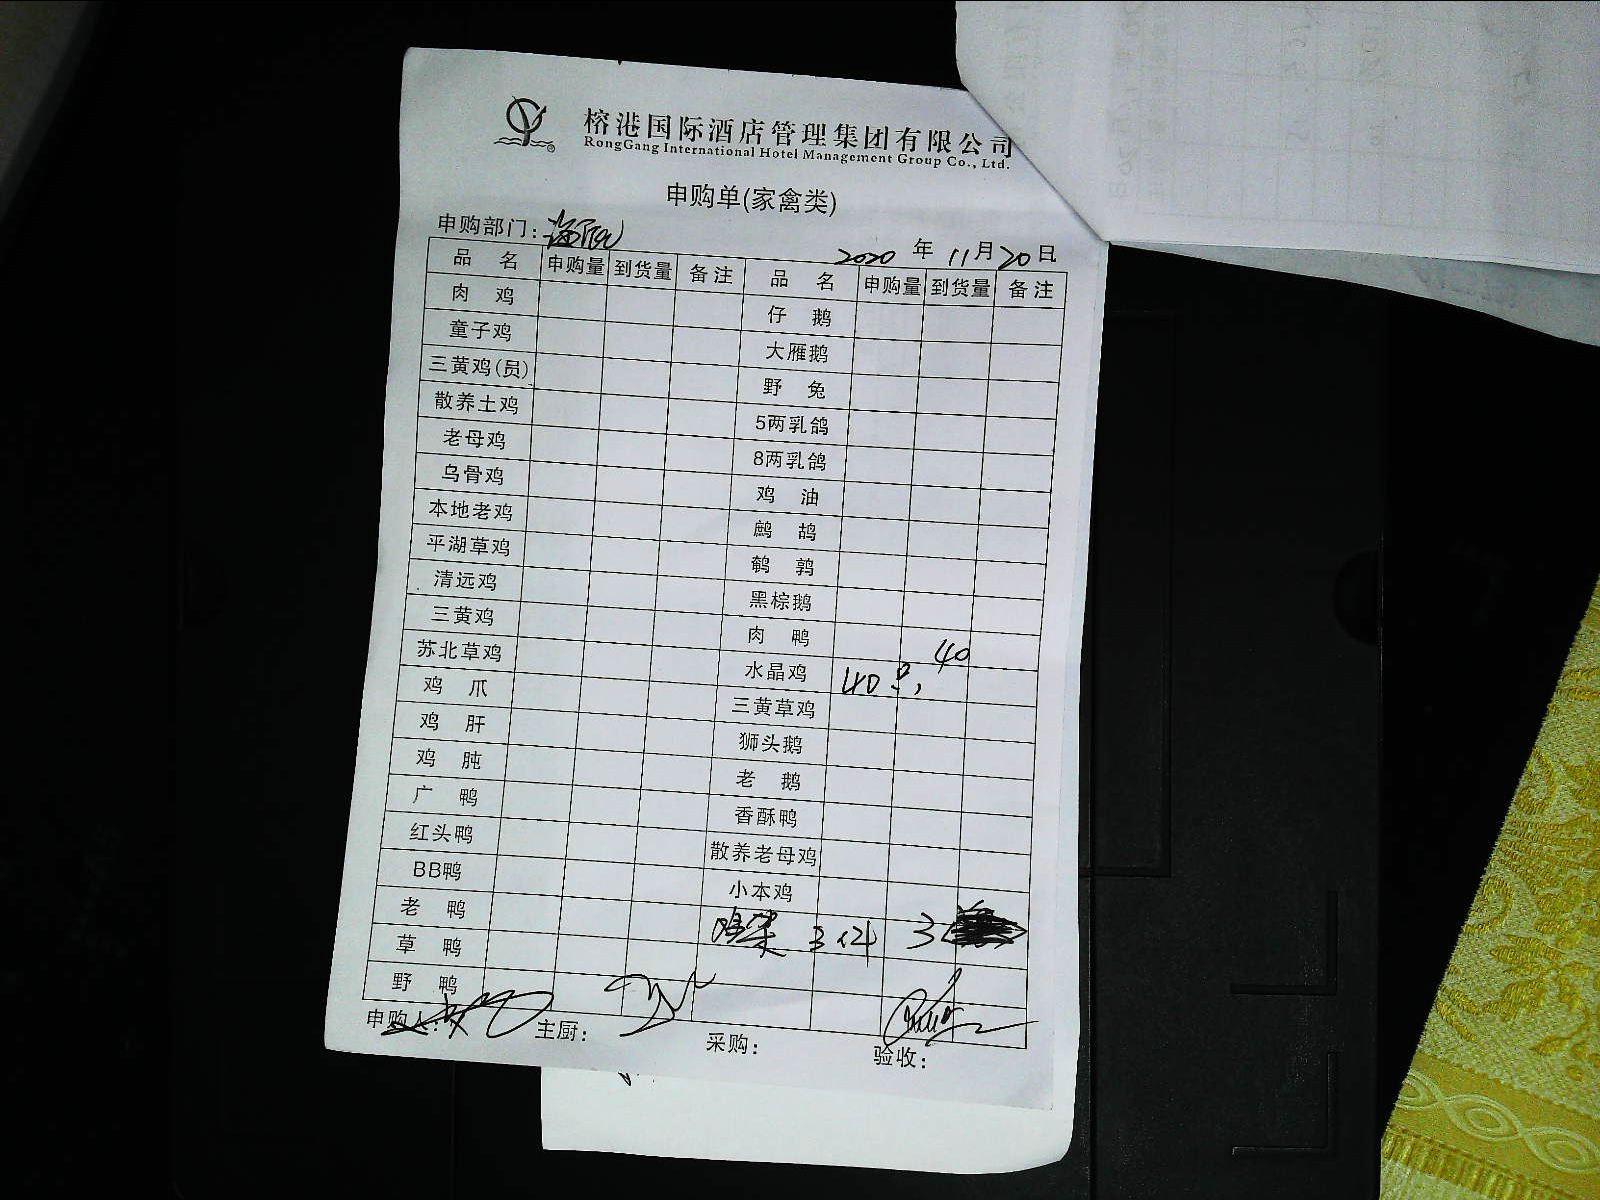 榕港国际酒店管理集团有限公司
RongGang International Hotel Management Group Co., Ltd.
申购单(家禽类)
申购部门:
2020 年 11 月 20 日
品 名 申购量 到货量 备注 品 名 申购量 到货量 备注
肉 鸡 仔 鹅
童子鸡 大雁鹅
三黄鸡(员) 野 兔
散养土鸡 5两乳鸽
老母鸡 8两乳鸽
乌骨鸡 鸡 油
本地老鸡 鹧 鸪
平湖草鸡 鹌 鹑
清远鸡 黑棕鹅
三黄鸡 肉 鸭
苏北草鸡 水晶鸡 40只, 40
鸡 爪 三黄草鸡
鸡 肝 狮头鹅
鸡 肫 老 鹅
广 鸭 香酥鸭
红头鸭 散养老母鸡
BB鸭 小本鸡
老 鸭 鸡柒 3斤 3
草 鸭
野 鸭
申购人: 主厨: 采购: 验收: